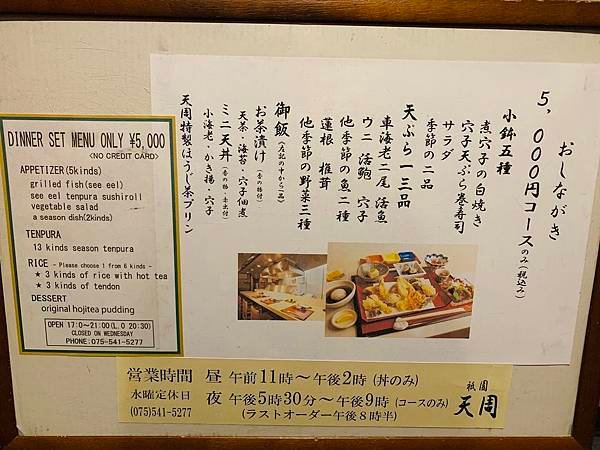 DINNER SET MENU ONLY ¥5,000
<NO CREDIT CARD>
APPETIZER(5kinds)
grilled fish(see eel)
see eel tenpura sushiroll
vegetable salad
a season dish(2kinds)
TENPURA
13 kinds season tenpura
RICE - Please choose 1 from 6 kinds -
★ 3 kinds of rice with hot tea
★ 3 kinds of tendon
DESSERT
original hojitea pudding
OPEN 17:0~21:00(L.O 20:30)
CLOSED ON WEDNESDAY
PHONE:075-541-5277
おしながき
5,000円コースのみ(税込み)
小鉢五種
煮穴子の白焼き
穴子天ぷら巻寿司
サラダ
季節の二品
天ぷら一三品
車海老二尾 活魚
ウニ 活鮑 穴子
他季節の魚二種
蓮根 椎茸
他季節の野菜三種
御飯(左記の中から一品)
お茶漬け(香の物付)
天茶・海苔・穴子佃煮
ミニ天丼(香の物・赤出付)
小海老・かき揚・穴子
天周特製ほうじ茶プリン
営業時間 昼 午前11時～午後2時(丼のみ)
水曜定休日 夜 午後5時30分～午後9時(コースのみ)
(075)541-5277 (ラストオーダー午後8時半)
祇園
天周